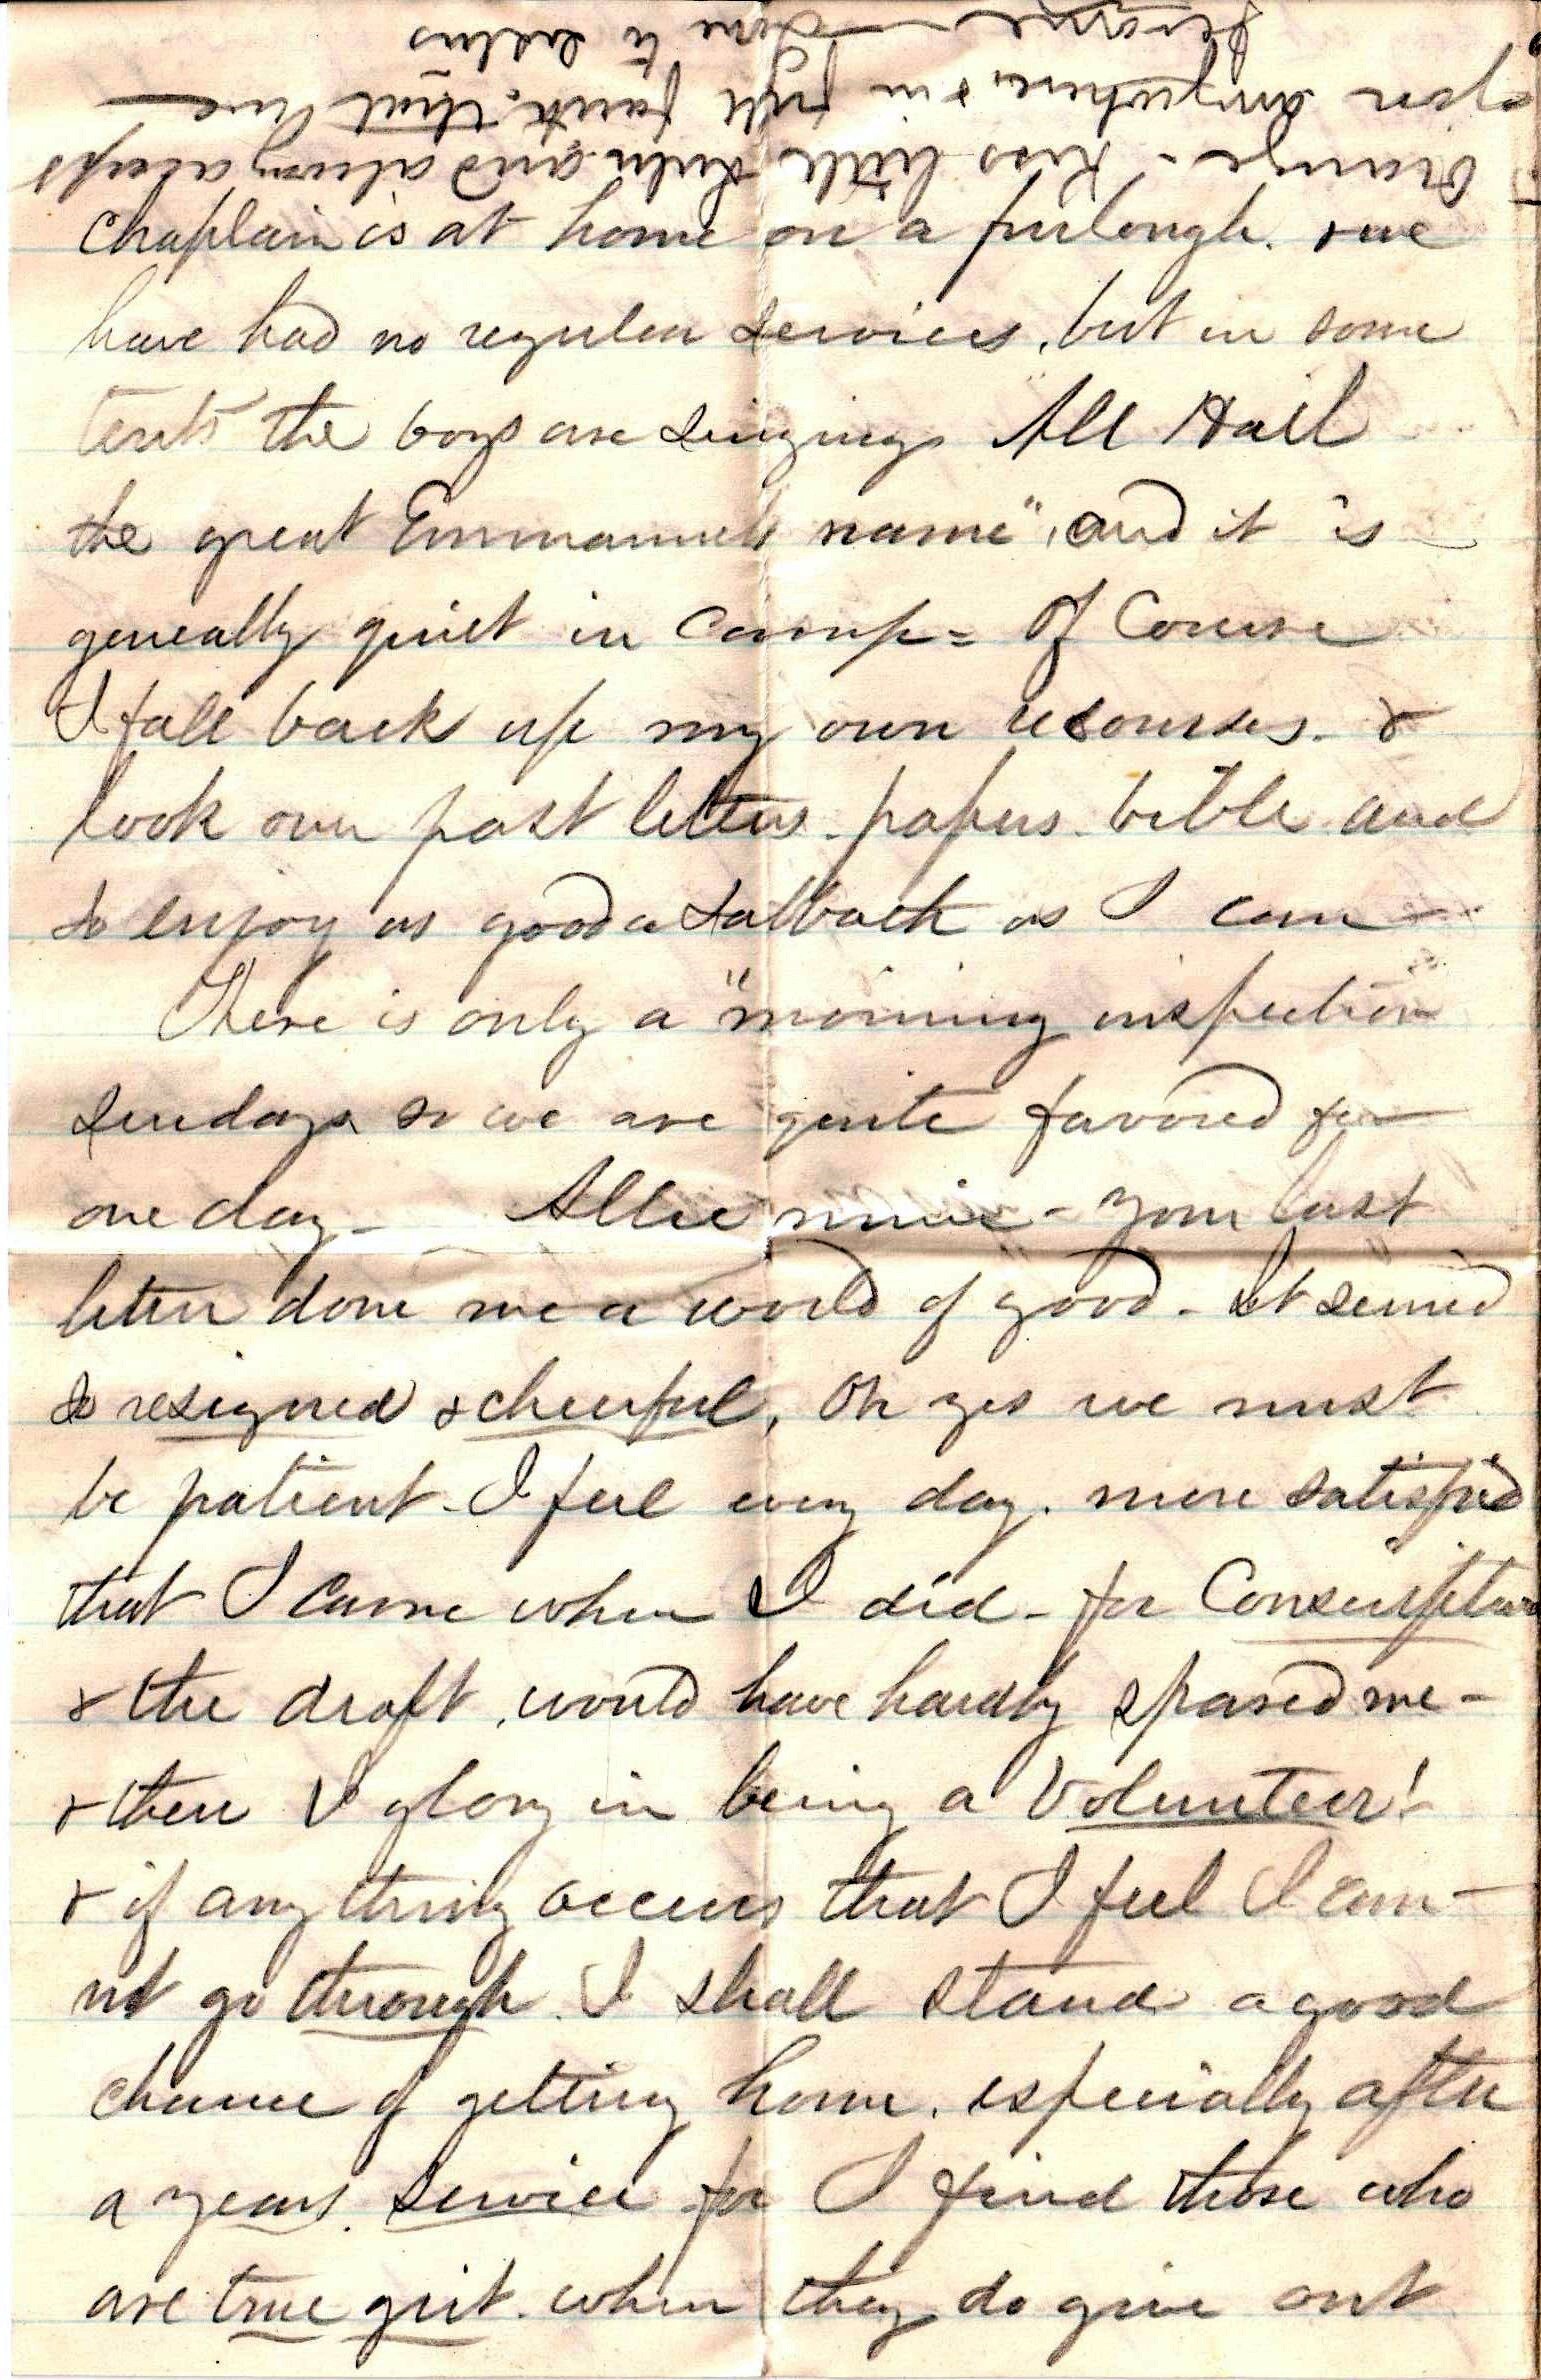 Orange - Kiss little Lulu and always accept
for anywhere & in full faith that love
Jerome love to sisters
chaplain is at home on a furlough. & we
have had no regular services, but in some
tents the boys are singing All Hail
the great Emmanuels name", and it is
geneally quiet in Camp = Of Course
I fall back up my own resourses. &
look over past letters - papers - bible and
so enjoy as good a Sabbath as I can -
There is only a "morning inspection
Sundays so we are quite favored for
one day - Allie mine - your last
letter done me a world of good - It seemed
so resigned & cheerful, Oh yes we must
be patient - I feel every day. more satisfied
that I came when I did - for Conscription
& the draft, would have hardly spared me -
& then I glory in being a Volunteer!
& if any thing occurs that I feel I can -
not go through I shall stand a good
chance of getting home. especially after
a years service for I find those who
are true grit. when they do give out